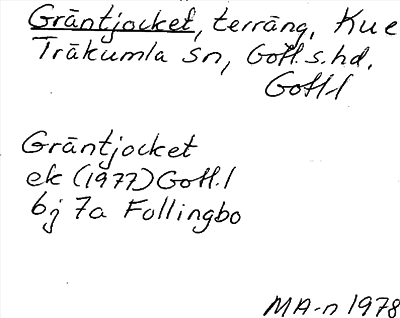 Gräntjocket, terräng, Kue
Träkumla sn, Gotl. s. hd,
Gotl. l
Gräntjocket
ek (1977) Gotl. l
6j 7a Follingbo
MA-n 1978